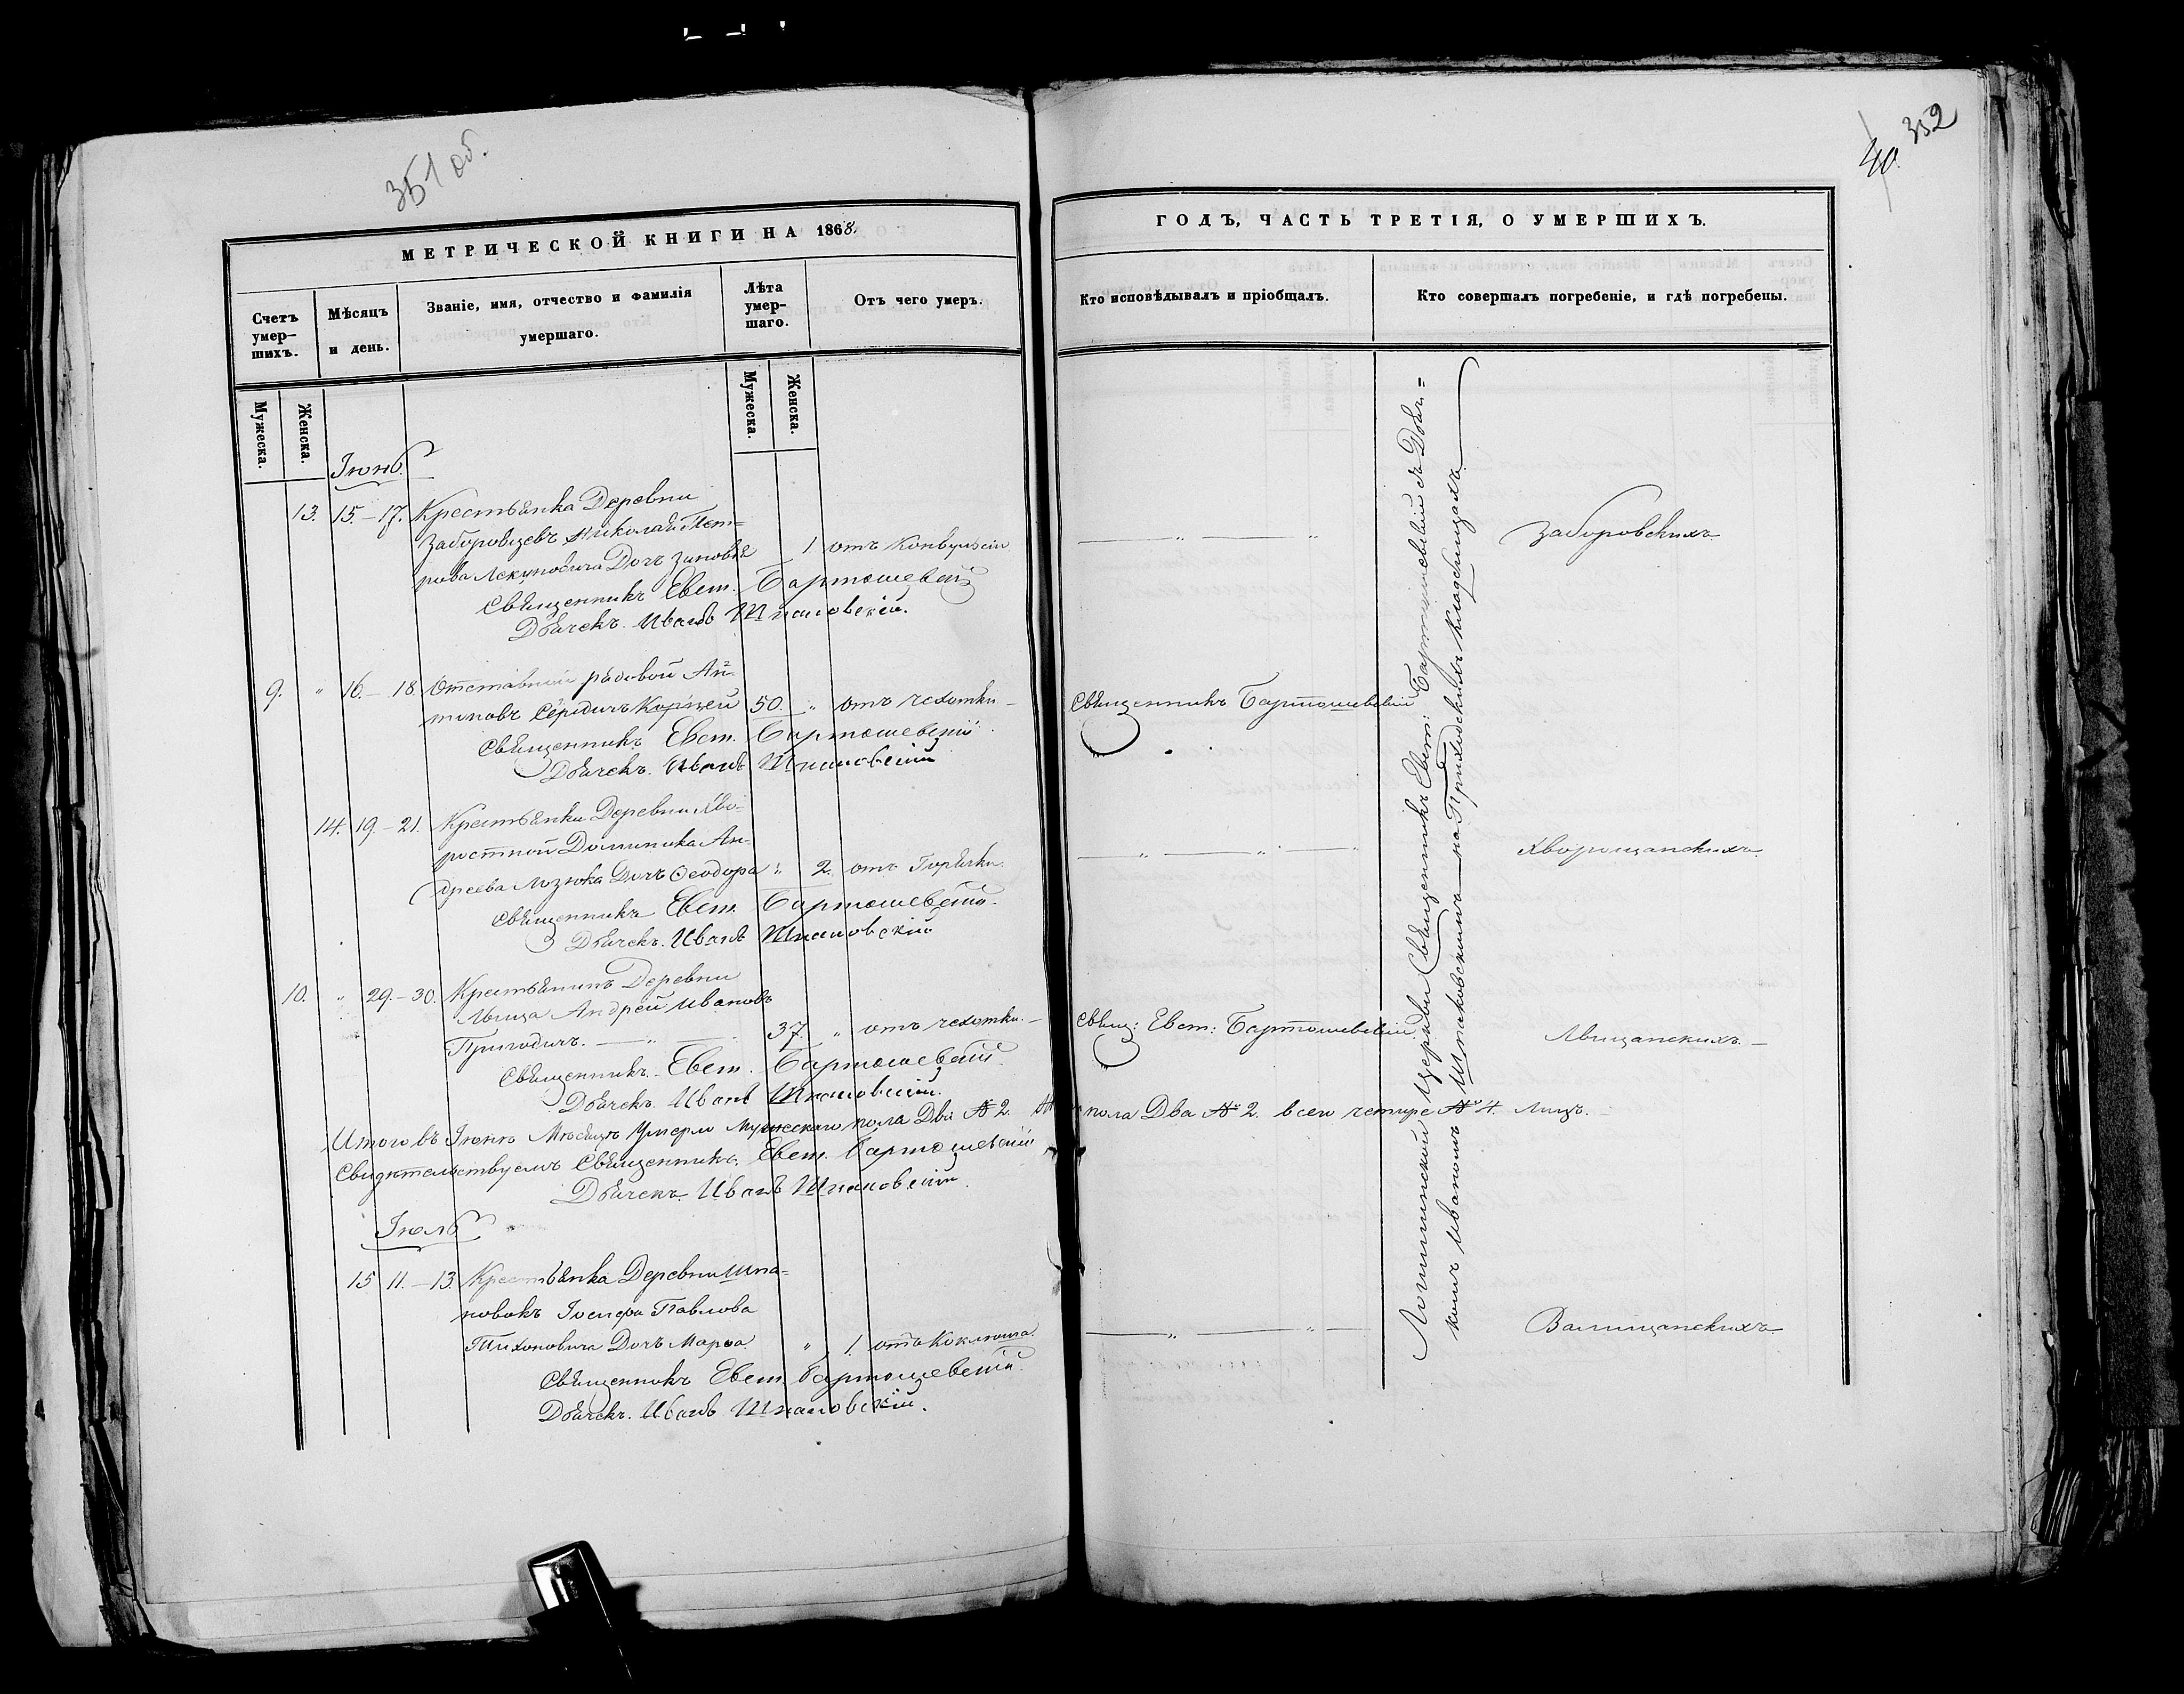 351 об.
МЕТРИЧЕСКОЙ КНИГИ НА 1868.
Счетъ умер-шихъ.
Мѣсяцъ и день.
Званіе, имя, отчество и фамилія умершаго.
Лѣта умер-шаго.
Отъ чего умеръ.
Мужеска.
Женска.
Мужеска.
Женска.
Іюнь.
13. 15.–17. Крестьянка Деревни
Заборовцевъ Николая Пет=
рова Дочь Зиновія 1 отъ Конвульсіи
Священникъ Евст. Бартошевскій
Дьячекъ Иванъ Шпаковскій.
9. " 16.–18. Отставный рядовой Ан-
тоновъ 50. " отъ чехотки
Священникъ Евст. Бартошевскій
Дьячекъ Иванъ Шпаковскій
14. 19.–21. Крестьянка Деревни Хво-
ростной Доминика Ан-
дреева Лозюка Дочь Ѳеодора " 2. отъ Горячки.
Священникъ Евст. Бартошевскій.
Дьячекъ. Иванъ Шпаковскій
10. " 29.–30. Крестьянинъ Деревни
Андрей Ивановъ
Пригодичъ. 37. " отъ чехотки.
Священникъ Евст. Бартошевскій
Дьячекъ Иванъ Шпаковскій.
Итого въ Іюнѣ Мѣсяцѣ Умерло Мужескаго пола Два № 2.
Свидѣтельствуемъ Священникъ. Евст. Бартошевскій
Дьячекъ Иванъ Шпаковскій.
Іюль
15 11.–13. Крестьянка Деревни Шпа=
новокъ Іосифа Павлова
Тихоновича Дочь Марѳа " 1. отъ Коклюша.
Священникъ Евст. Бартошевскій.
Дьячекъ. Иванъ Шпаковскій.
40. 352
ГОДЪ, ЧАСТЬ ТРЕТІЯ, О УМЕРШИХЪ.
Кто исповѣдывалъ и пріобщалъ.
Кто совершалъ погребеніе, и гдѣ погребены.
Логишинской Церкви Священникъ Евст: Бартошевскій съ Дьяч=
комъ Иваномъ Шпаковскимъ на Приходскихъ Кладбищахъ
Заборовскихъ
Священникъ Бартошевскій
Хворощанскихъ
Свящ: Евст: Бартошевскій
пола Два № 2. всего четыре № 4. Лицъ.
Валищанскихъ